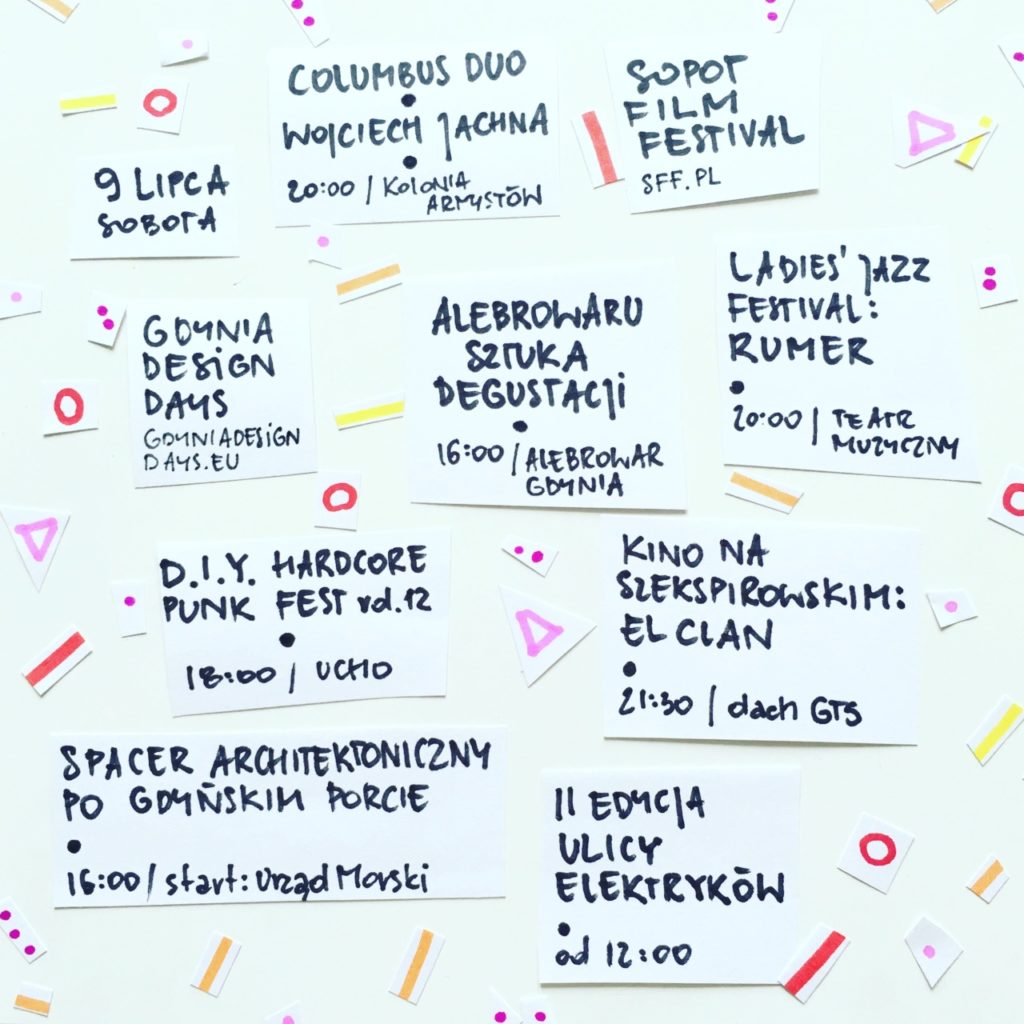 9 LIPCA
SOBOTA
COLUMBUS DUO
•
WOJCIECH JACHNA
•
20:00 / KOLONIA
ARTYSTÓW
SOPOT
FILM
FESTIVAL
SFF.PL
GDYNIA
DESIGN
DAYS
GDYNIADESIGN
DAYS.EU
ALEBROWARU
SZTUKA
DEGUSTACJI
•
16:00 / ALEBROWAR
GDYNIA
LADIES' JAZZ
FESTIVAL:
RUMER
•
20:00 / TEATR
MUZYCZNY
D.I.Y. HARDCORE
PUNK FEST vol.12
•
18:00 / UCHO
KINO NA
SZEKSPIROWSKIM:
EL CLAN
•
21:30 / dach GTS
SPACER ARCHITEKTONICZNY
PO GDYŃSKIM PORCIE
•
16:00 / start: Urząd Morski
II EDYCJA
ULICY
ELEKTRYKÓW
•
od 12:00